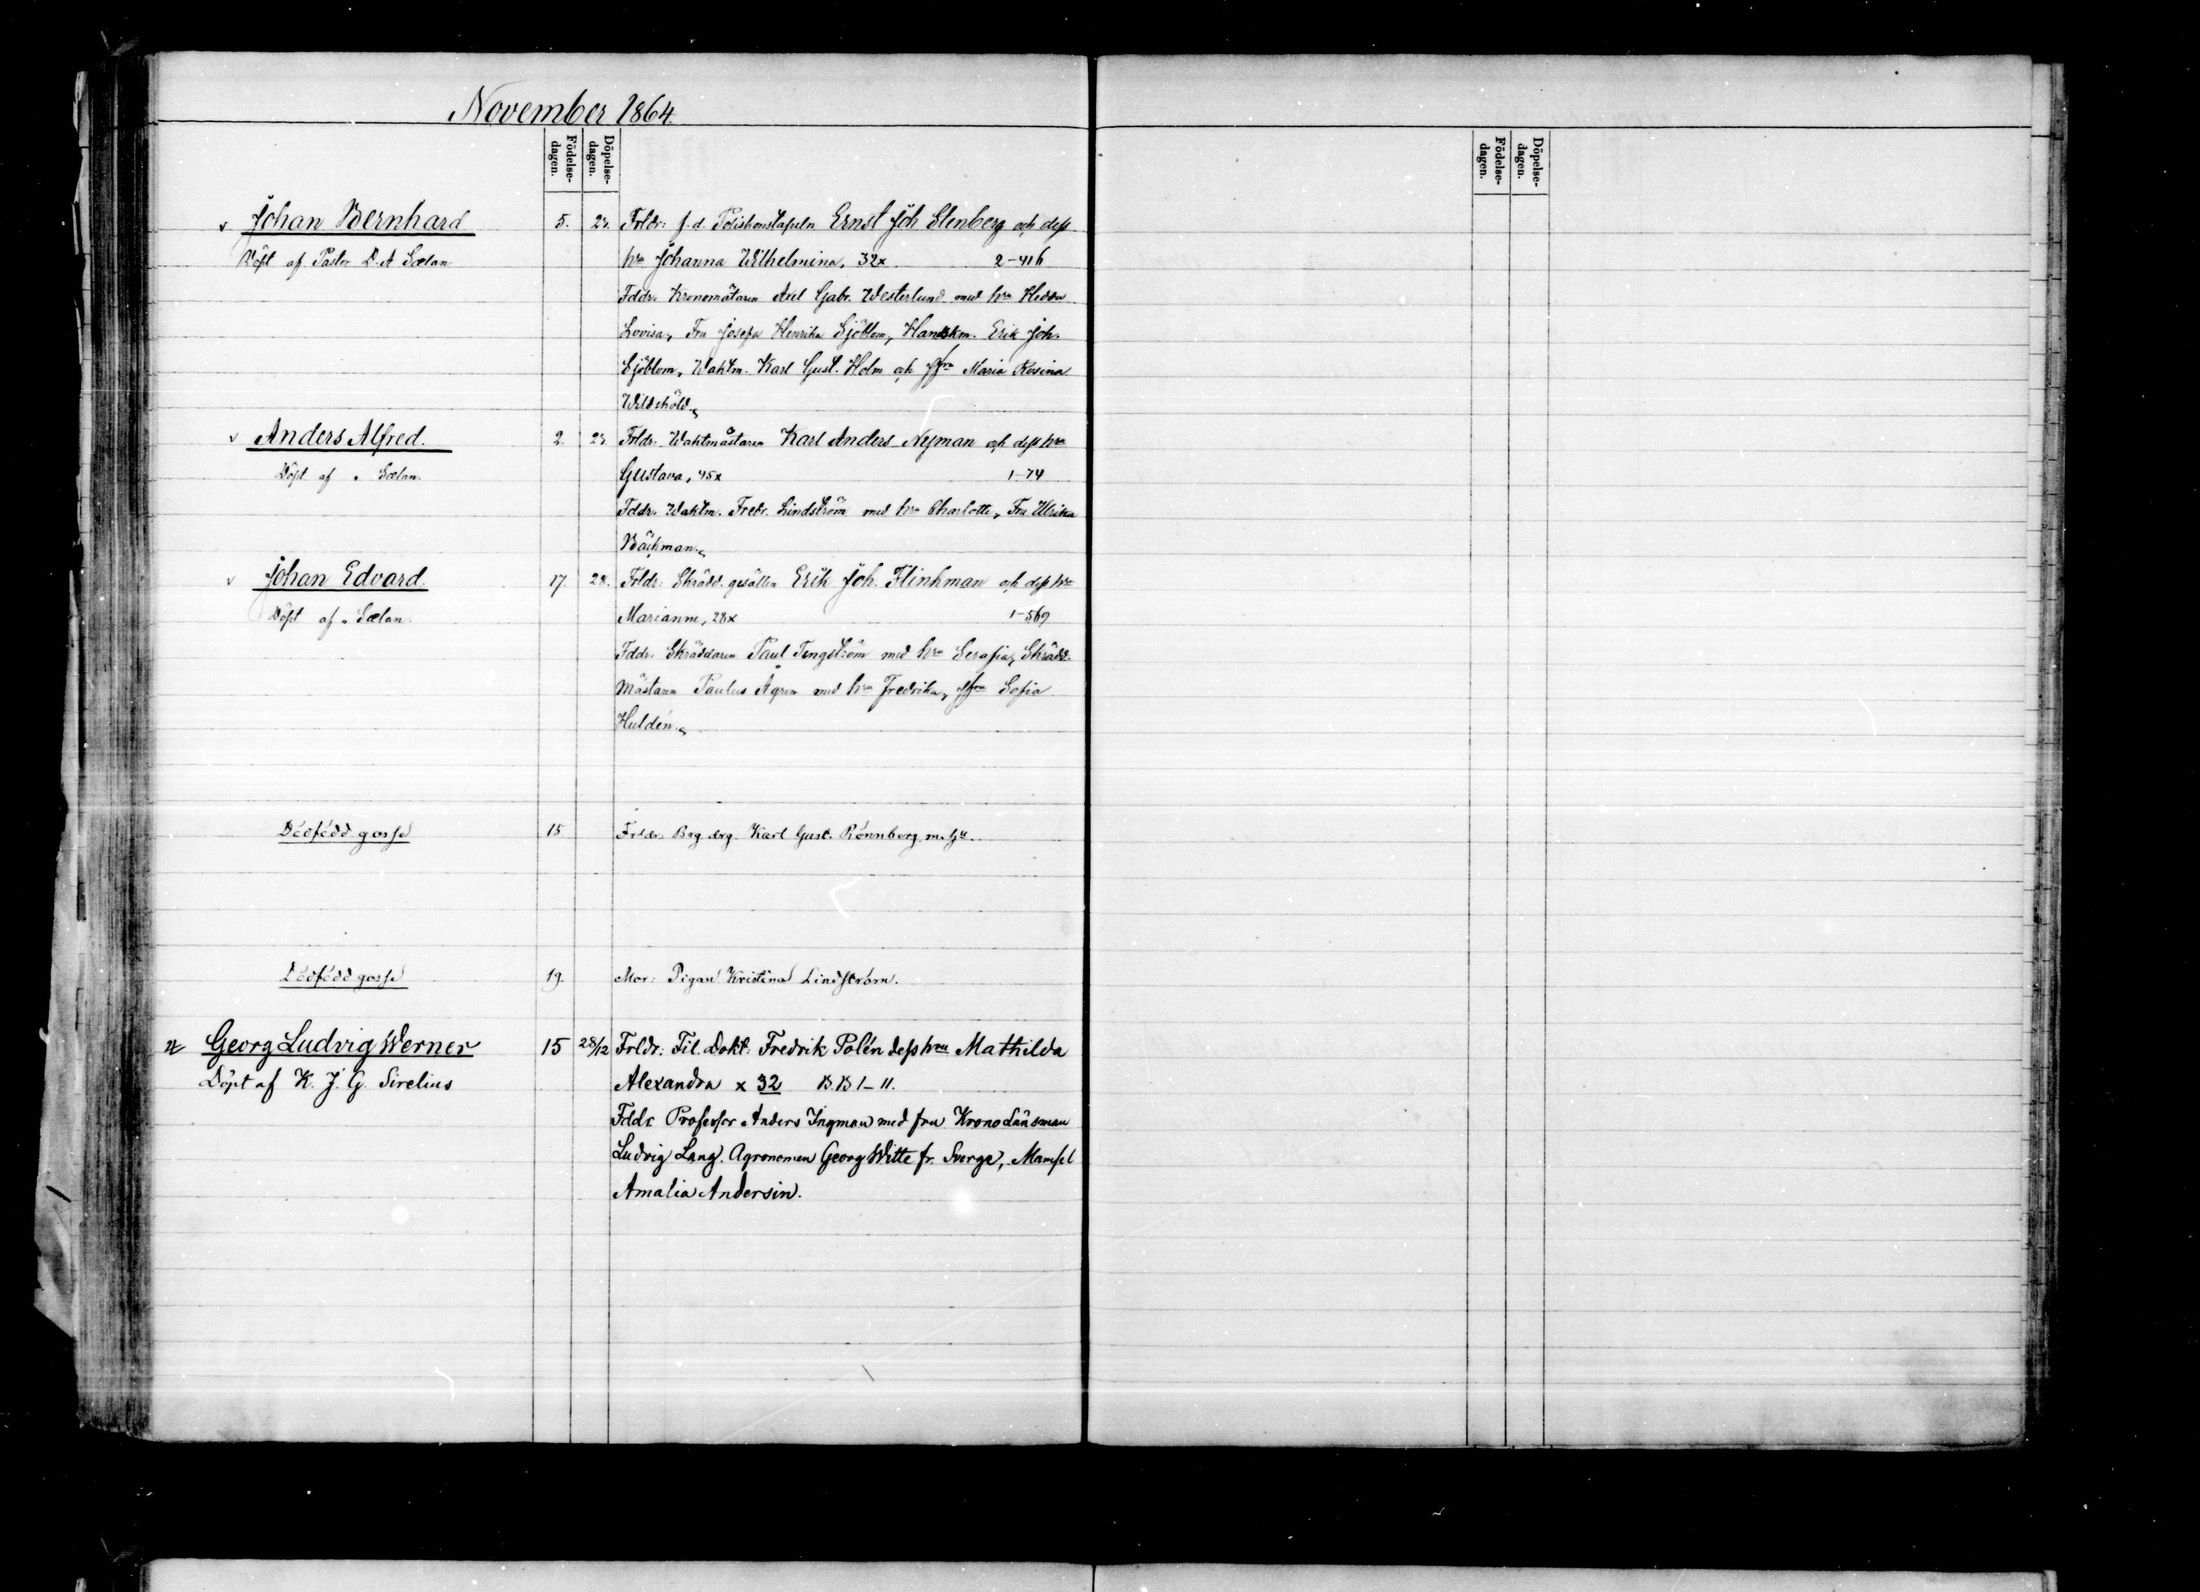 November 1864.
Födelse-dagen. Döpelse-dagen.
Födelse-dagen. Döpelse-dagen.
v Johan Bernhard 5. 23. Frldr: f.d. Poliskonstapeln Ernst Joh Stenberg och dess
Döpt af Pastor D. A Sælan hru Johanna Wilhelmina, 32x 2-416
Fddr. Kronomätaren Axel Gabr. Westerlund med hru Hedda
Lovisa, Fru Josefa Henrika Sjöblom, Handskm. Erik Joh.
Sjöblom, Wahtm. Karl Gust. Holm och Jfru Maria Rosina
Wildsköld.
v Anders Alfred. 2. 23 Frldr. Wahtmästaren Karl Anders Nyman och dess hru
Döpt af " Sælan. Gustava, 45x 1-74
Fddr. Wahtm. Fredr. Lindström med hru Charlotte, Fru Ulrika
Bäckman.
v Johan Edvard. 17. 28. Frldr: Skrädd. gesällen Erik Joh. Flinkman och dess hru
Döpt af " Sælan. Marianne, 28x 1-569
Fddr. Skräddaren Paul Tengström med hru Serafia, Skrädd.
Mästaren Paulus Ågren med hru Fredrika, Jfru Sofia
Huldén.
Dödfödd gosse 15 Frldr: Karl Gust. Rönnberg m. Hu.
Dödfödd gosse 19. Mor: Pigan Kristina Lindström.
Georg Ludvig Werner 15 28/12 Frldr: Fil. Dokt: Fredrik Polén dess hru Mathilda
Döpt af K. J. G. Sirelius Alexandra x 32 B.B 1-11.
Fddr. Professor Anders Ingman med fru Kronolänsman
Ludvig Lang. Agronomen Georg Witte fr. Sverge, Mamsel
Amalia Andersin.